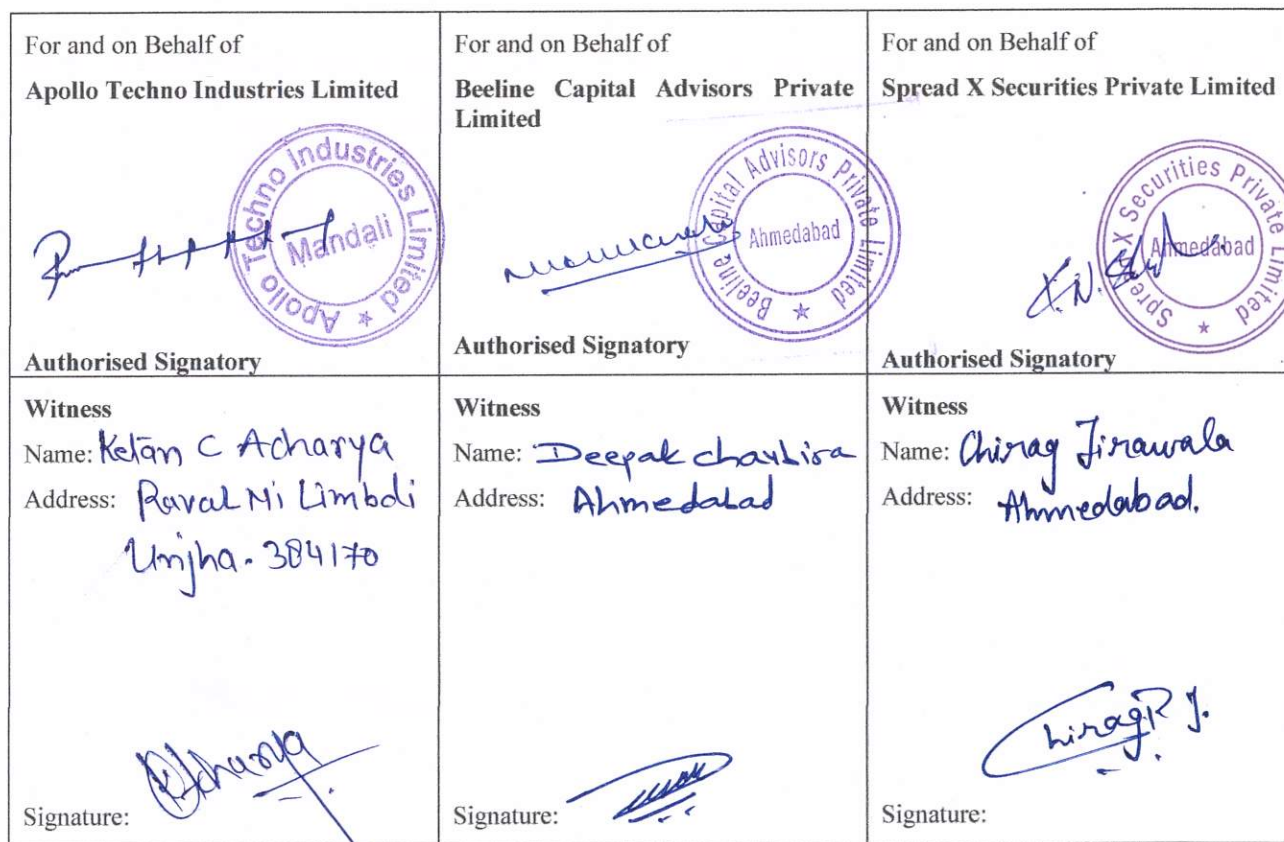 For and on Behalf of
Apollo Techno Industries Limited
Apollo Techno Industries Limited ★
Mandali
Authorised Signatory
For and on Behalf of
Beeline Capital Advisors Private
Limited
Beeline Capital Advisors Private Limited ★
Ahmedabad
Authorised Signatory
For and on Behalf of
Spread X Securities Private Limited
Spread X Securities Private Limited ★
Ahmedabad
Authorised Signatory
Witness
Name: Ketan C Acharya
Address: Raval Limbdi
Unjha. 384170
Signature: Acharya
Witness
Name: Deepak
Address: Ahmedabad
Signature:
Witness
Name: Chirag Jirawala
Address: Ahmedabad.
ChiragR J.
Signature: